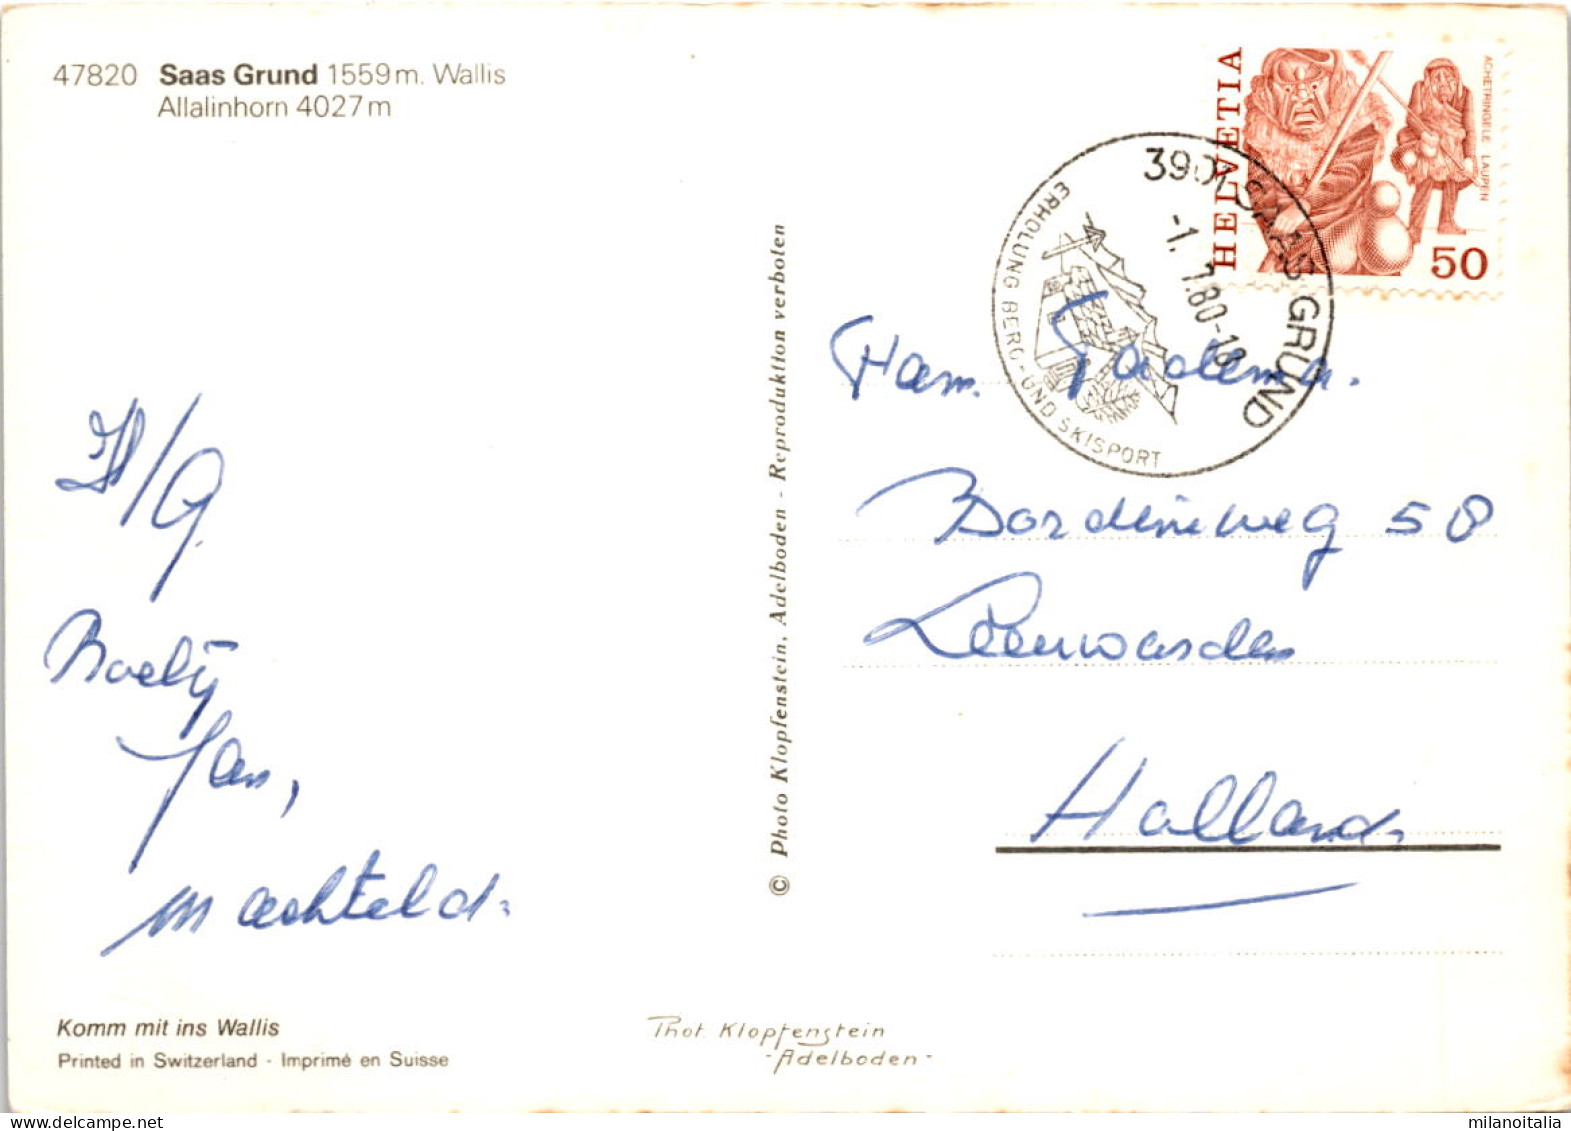 47820 Saas Grund 1559 m. Wallis
Allalinhorn 4027 m
HELVETIA
ACHETRINGELE LAUPEN
50
3901 SAAS GRUND
-1. 7.80-18
ERHOLUNG BERG- UND SKISPORT
Fam.
Bordineweg 58
Leeuwarden
Holland
H/G.
Jan,
Machteld.
© Photo Klopfenstein, Adelboden - Reproduktion verboten
Komm mit ins Wallis
Printed in Switzerland - Imprimé en Suisse
Phot. Klopfenstein
- Adelboden -
milanoitalia